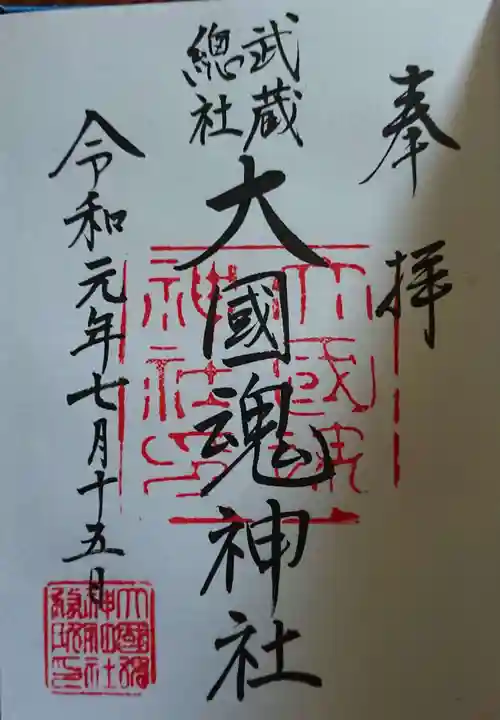 奉拝
武蔵
總社
大國魂神社
令和元年七月十五日